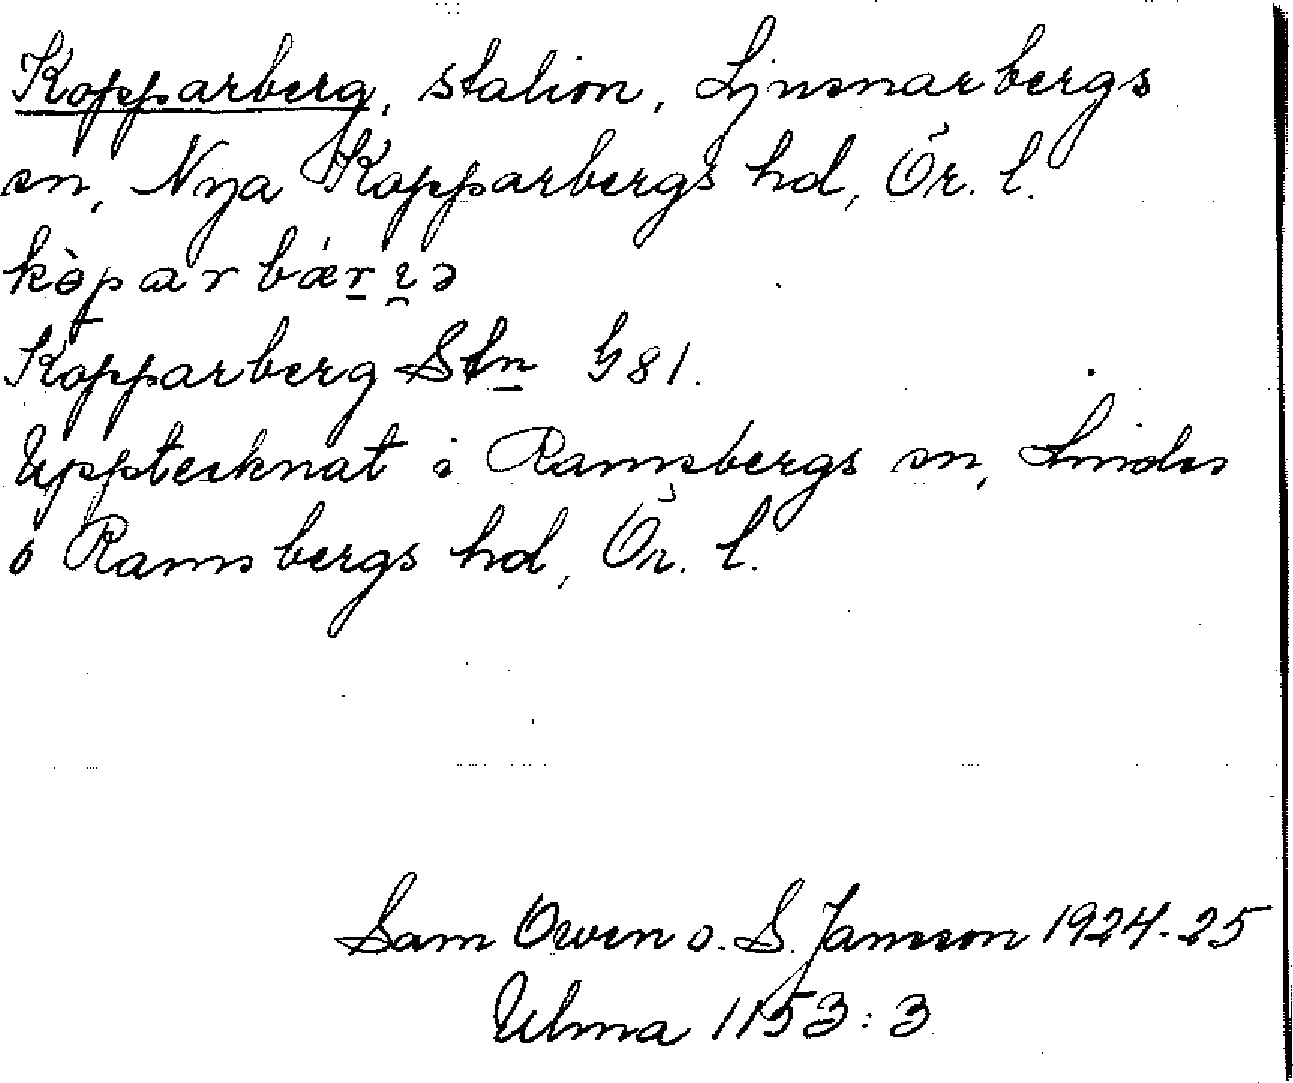 Kopparberg, station, Ljusnarsbergs
sn, Nya Kopparbergs hd, Ör. l.
kòparbæ̀r̲ı̲ə
Kopparberg Stn G81.
Upptecknat i Ramsbergs sn, Lindes
o Ramsbergs hd, Ör. l.
Sam Owen o. S. Jansson 1924-25
Ulma 1153:3